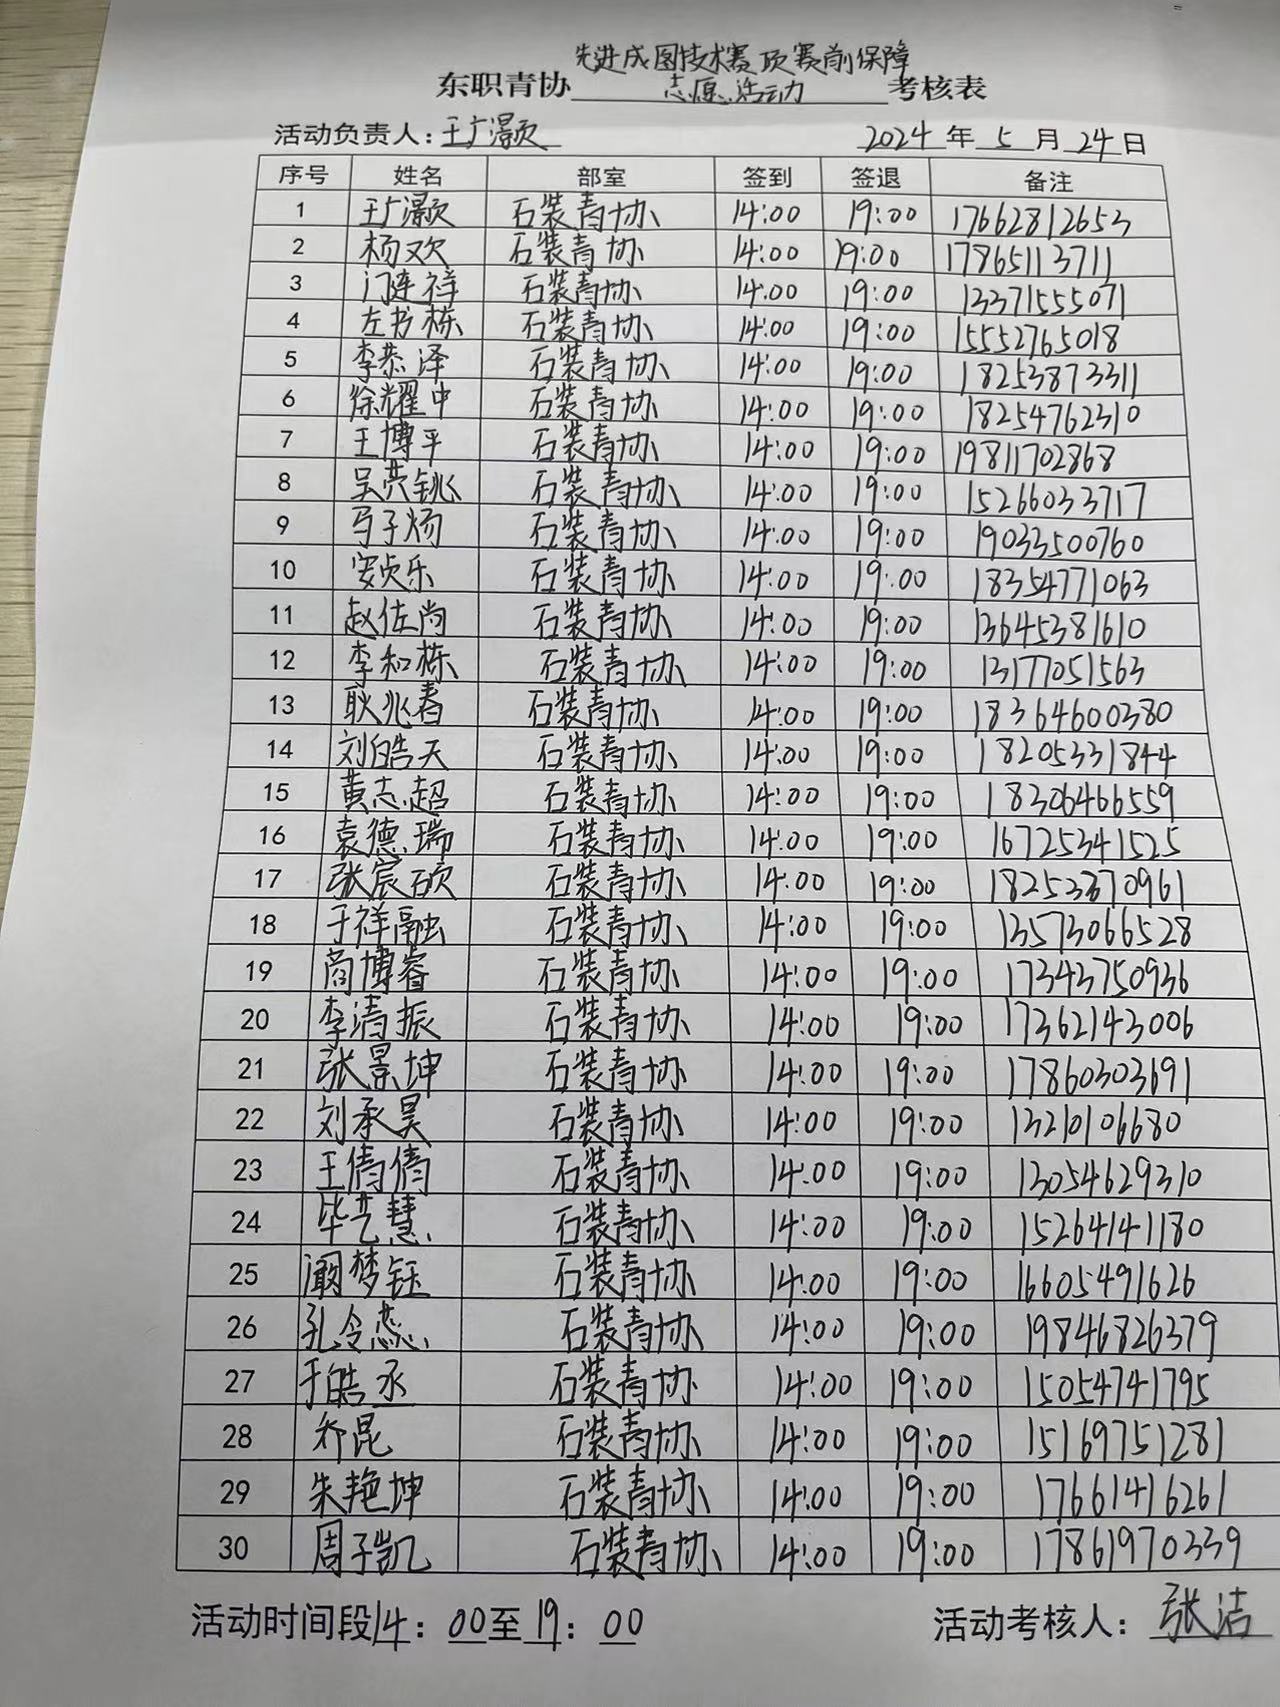 先进成图技术赛项赛前保障
东职青协 志愿活动 考核表
活动负责人：王广灏 2024 年 5 月 24 日
序号 姓名 部室 签到 签退 备注
1 王广灏 石装青协 14:00 19:00 17662812653
2 杨欢 石装青协 14:00 19:00 17865113711
3 门连祥 石装青协 14:00 19:00 13371555071
4 左书栋 石装青协 14:00 19:00 15552765018
5 李恭泽 石装青协 14:00 19:00 18253873311
6 徐耀中 石装青协 14:00 19:00 18254762310
7 王博平 石装青协 14:00 19:00 19811702868
8 吴荧铫 石装青协 14:00 19:00 15266033717
9 马子炀 石装青协 14:00 19:00 19033500760
10 安贞乐 石装青协 14:00 19:00 18354771063
11 赵佐尚 石装青协 14:00 19:00 13645381610
12 李和栋 石装青协 14:00 19:00 13177051563
13 耿兆春 石装青协 14:00 19:00 18364600380
14 刘皓天 石装青协 14:00 19:00 18205331844
15 黄志超 石装青协 14:00 19:00 18306466559
16 袁德瑞 石装青协 14:00 19:00 16725341525
17 张宸硕 石装青协 14:00 19:00 18253370961
18 于祥融 石装青协 14:00 19:00 13573066528
19 商博睿 石装青协 14:00 19:00 17343750936
20 李清振 石装青协 14:00 19:00 17362143006
21 张景坤 石装青协 14:00 19:00 17860303691
22 刘承昊 石装青协 14:00 19:00 13210106680
23 王倩倩 石装青协 14:00 19:00 13054629310
24 毕艺慧 石装青协 14:00 19:00 15264141180
25 阚梦钰 石装青协 14:00 19:00 16605491626
26 孔令蕊 石装青协 14:00 19:00 19846826379
27 于皓丞 石装青协 14:00 19:00 15054741795
28 乔昆 石装青协 14:00 19:00 15169751281
29 朱艳坤 石装青协 14:00 19:00 17661416261
30 周子凯 石装青协 14:00 19:00 17861970339
活动时间段14：00至19：00 活动考核人：张洁